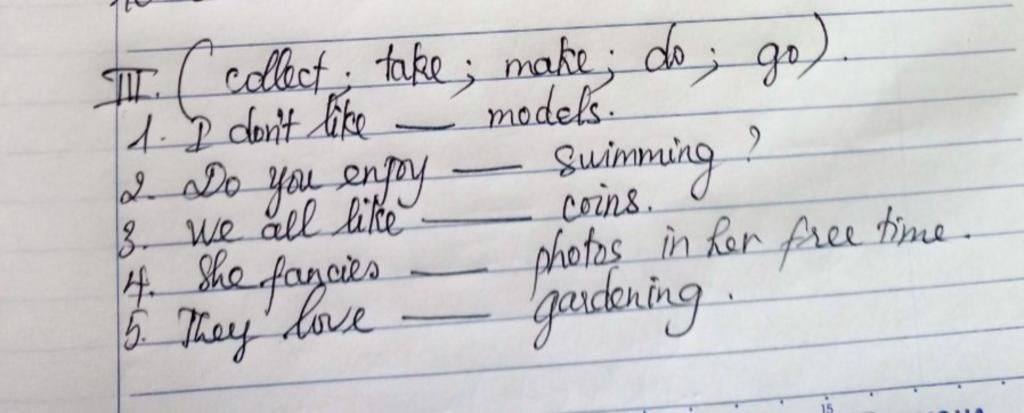 III. (collect; take; make; do; go).
1. I don't like ___ models.
2. Do you enjoy ___ swimming?
3. We all like ___ coins.
4. She fancies ___ photos in her free time.
5. They love ___ gardening.
15